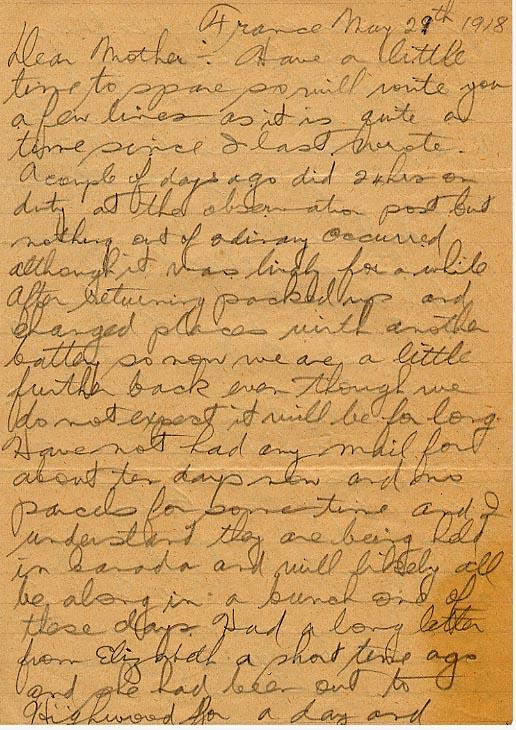 France May 29th 1918
Dear Mother:- Have a little
time to spare so will write you
a few lines as it is quite a
time since I last wrote.
A couple of days ago did 24hrs on
duty at the observation post but
nothing out of odinary occurred
although it was lively for a while
After returning packed up and
changed places with another
battery so now we are a little
further back even though we
do not expect it will be for long.
Have not had any mail for
about ten days now and no
parcels for sometime and I
understand they are being held
in Canada and will likely all
be along in a bunch one of
these days. Had a long letter
from Elizabeth a short time ago
and she had been out to
Highwood for a day and